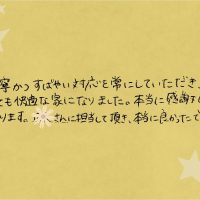 寧かつすばやい対応を常にしていただき、
ても快適な家になりました。本当に感謝
ります。 さんに担当して頂き、本当に良かったで